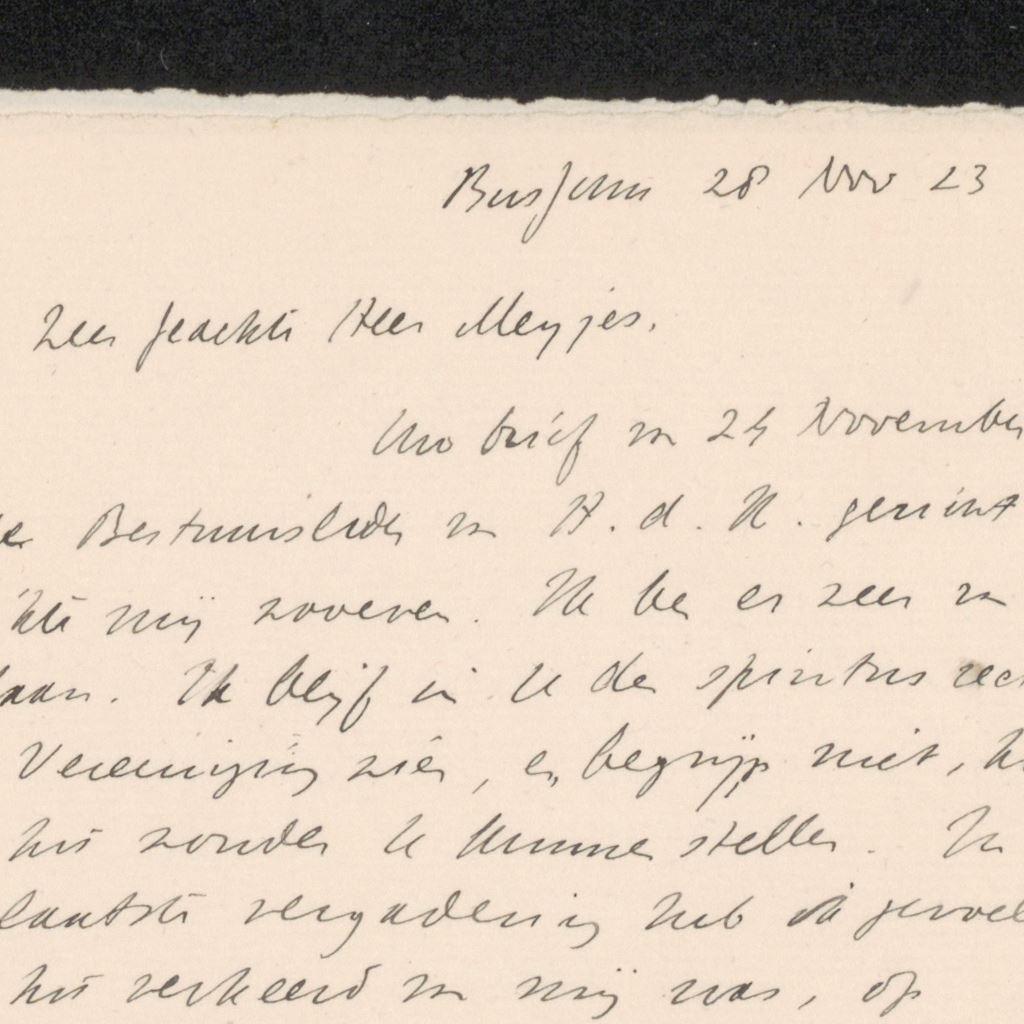 Bussum 28 Nov 23
Zeer geachte Heer Meyjes.
Uw brief van 24 November
Bestuursleden van H. d. K. gericht
mij zooeven. Ik ben er zeer van
daan. Ik blijf in U den spiritus rec
Vereeniging zien, en begrijp niet,
het zonder U kunnen stellen. In
laatste vergadering heb ik gevoel
het verkeerd van mij was, op